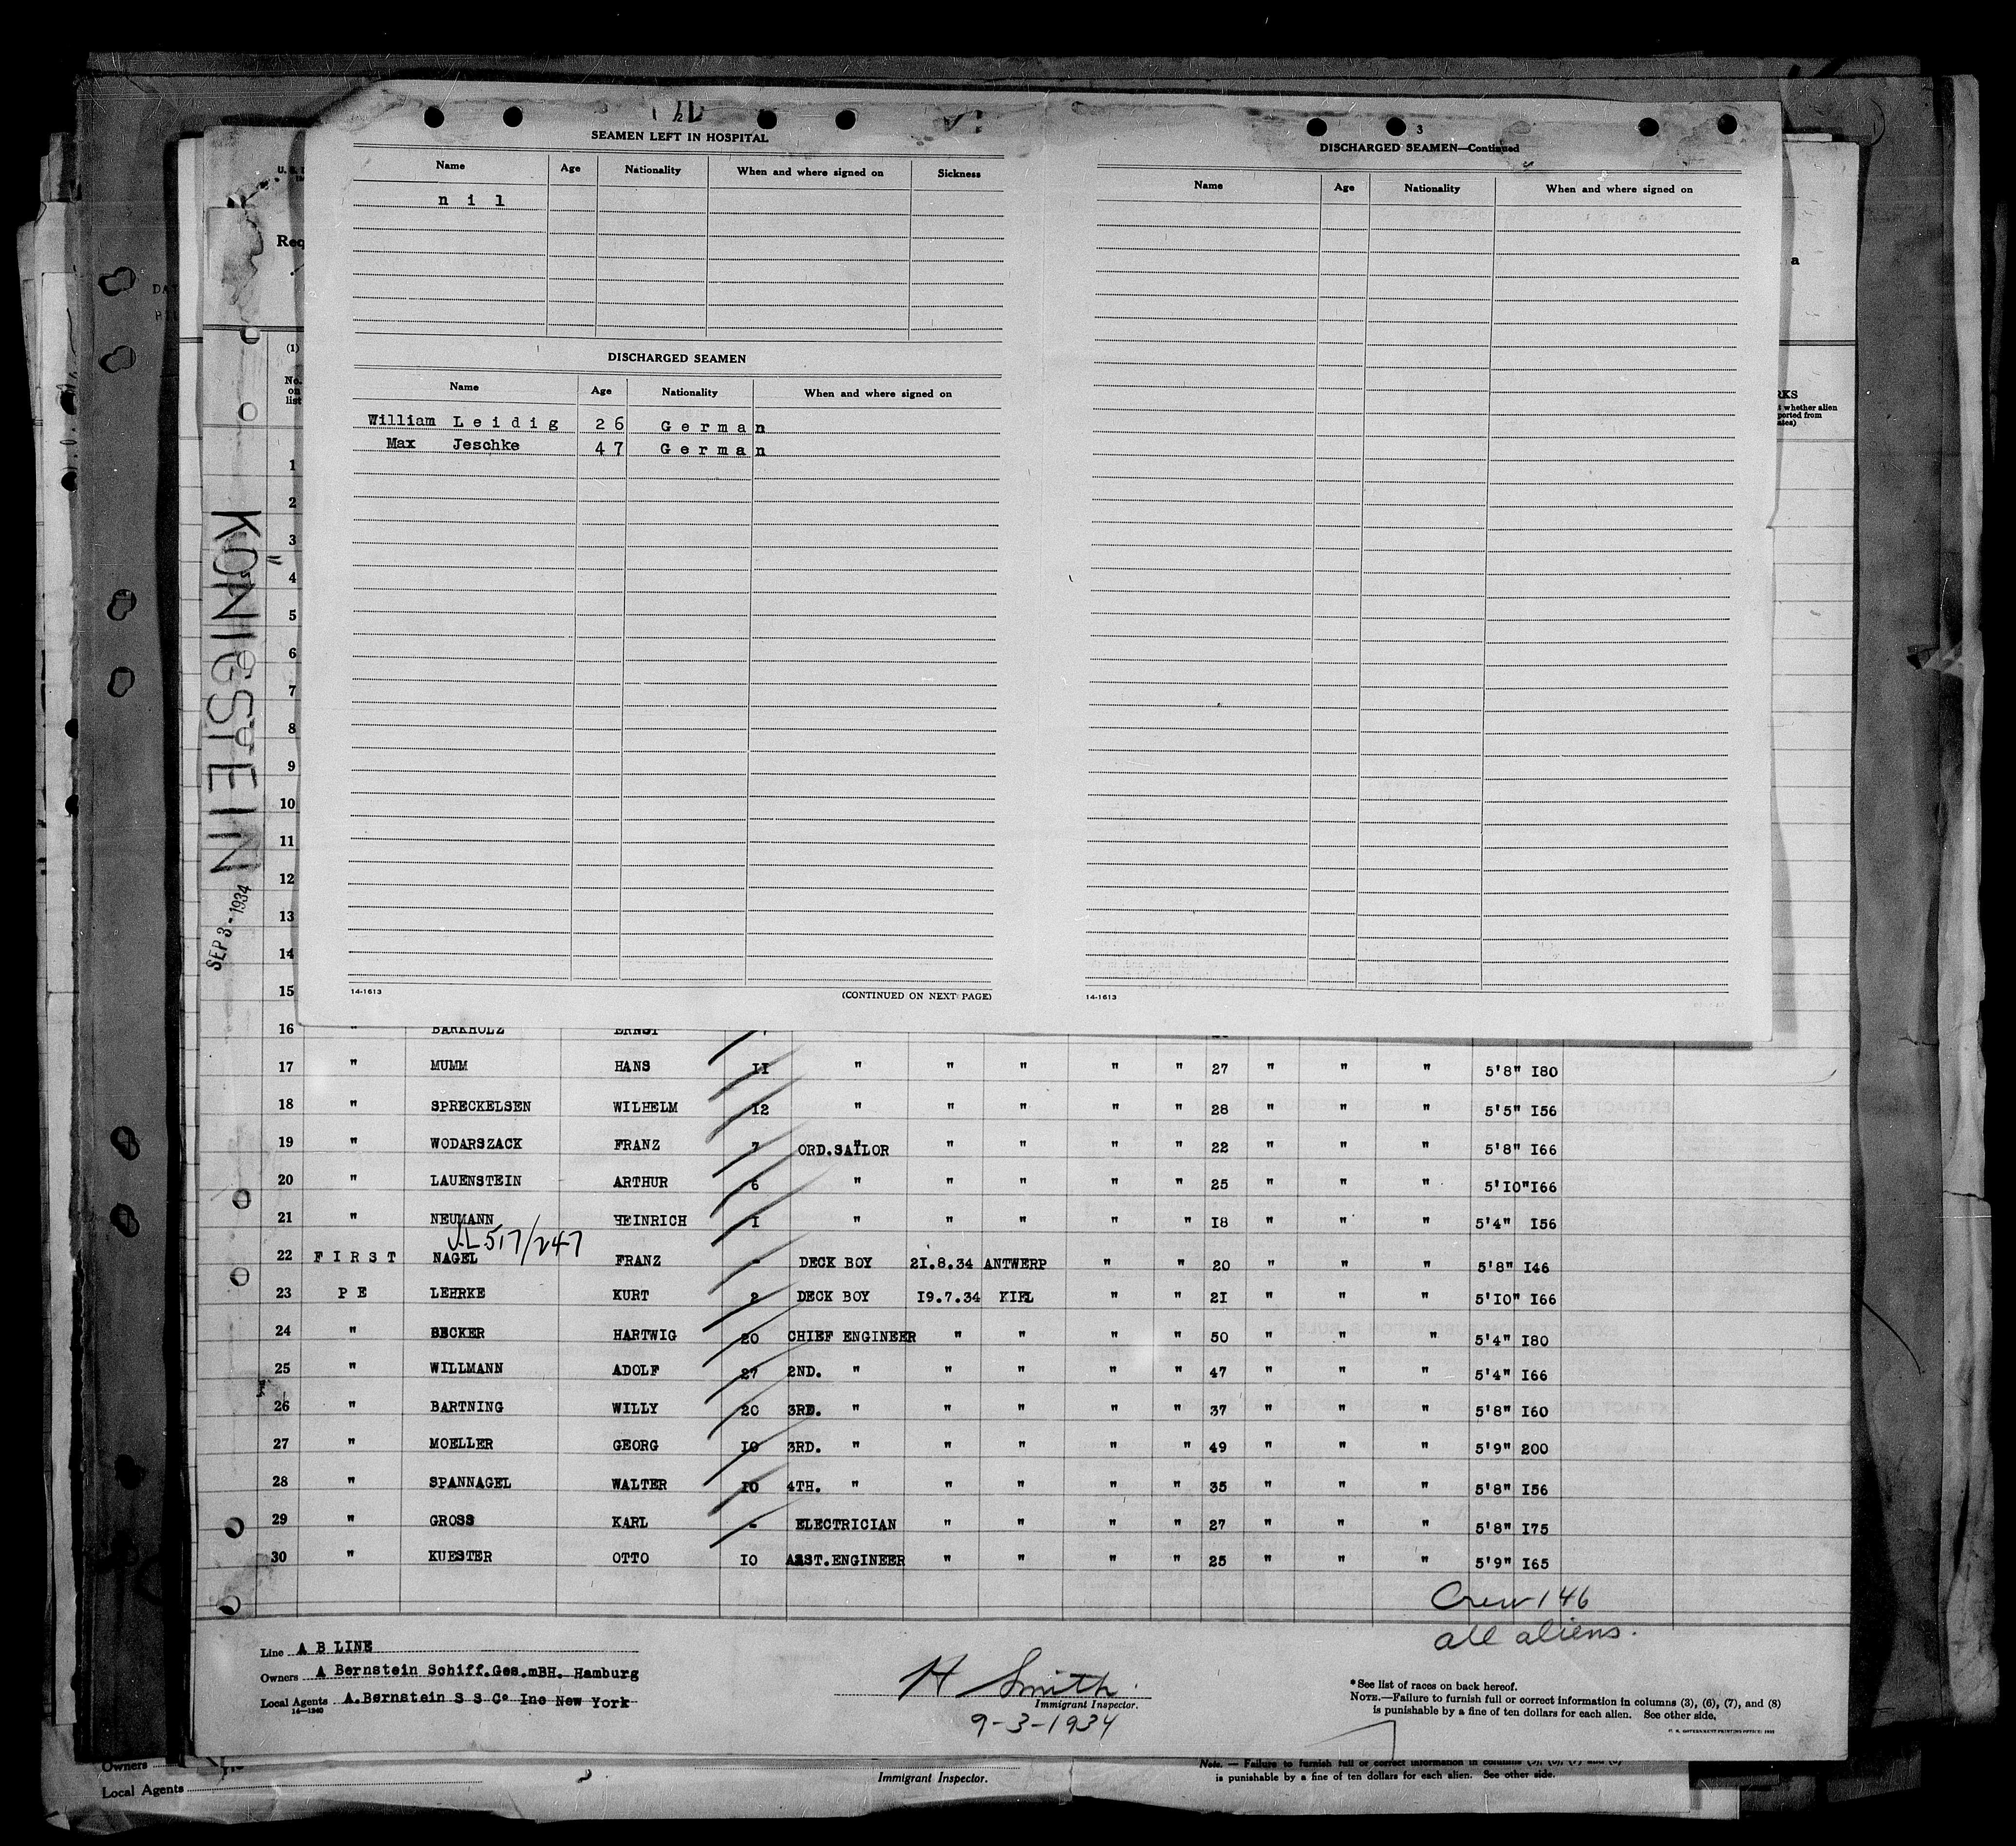 SEAMEN LEFT IN HOSPITAL
Name Age Nationality When and where signed on Sickness
n i l
DISCHARGED SEAMEN
Name Age Nationality When and where signed on
William Leidig 26 German
Max Jeschke 47 German
14-1613 (CONTINUED ON NEXT PAGE)
3
DISCHARGED SEAMEN—Continued
Name Age Nationality When and where signed on
14-1613
U. S.
Req
a
(1)
No. on list
RKS
whether alien
ported from
ates)
KÖNIGSTEIN
SEP 3 - 1934
1
2
3
4
5
6
7
8
9
10
11
12
13
14
15
16 " BARKHOLZ ERNST
17 " MUMM HANS II " " " " " 27 " " " 5'8" I80
18 " SPRECKELSEN WILHELM I2 " " " " " 28 " " " 5'5" I56
19 " WODARSZACK FRANZ 7 ORD.SAILOR " " " " 22 " " " 5'8" I66
20 " LAUENSTEIN ARTHUR 6 " " " " " 25 " " " 5'IO" I66
21 " NEUMANN HEINRICH I " " " " " I8 " " " 5'4" I56
V.L 517/247
22 FIRST NAGEL FRANZ - DECK BOY 2I.8.34 ANTWERP " " 20 " " " 5'8" I46
23 PE LEHRKE KURT 2 DECK BOY I9.7.34 KIEL " " 2I " " " 5'IO" I66
24 " BECKER HARTWIG 20 CHIEF ENGINEER " " " " 50 " " " 5'4" I80
25 " WILLMANN ADOLF 27 2ND. " " " " " 47 " " " 5'4" I66
26 " BARTNING WILLY 20 3RD. " " " " " 37 " " " 5'8" I60
27 " MOELLER GEORG IO 3RD. " " " " " 49 " " " 5'9" 200
28 " SPANNAGEL WALTER IO 4TH. " " " " " 35 " " " 5'8" I56
29 " GROSS KARL - ELECTRICIAN " " " " 27 " " " 5'8" I75
30 " KUESTER OTTO IO ASST.ENGINEER " " " " 25 " " " 5'9" I65
Crew 146
all aliens.
Line A B LINE
Owners A Bernstein Schiff.Ges.mBH. Hamburg
Local Agents A.Bernstein S S Co Inc New York
14—1240
H Smith
Immigrant Inspector.
9-3-1934
*See list of races on back hereof.
NOTE.—Failure to furnish full or correct information in columns (3), (6), (7), and (8)
is punishable by a fine of ten dollars for each alien. See other side.
Owners
Local Agents
Immigrant Inspector.
Note. — Failure to furnish full or correct information in columns (3), (6), (7) and (8)
is punishable by a fine of ten dollars for each alien. See other side.